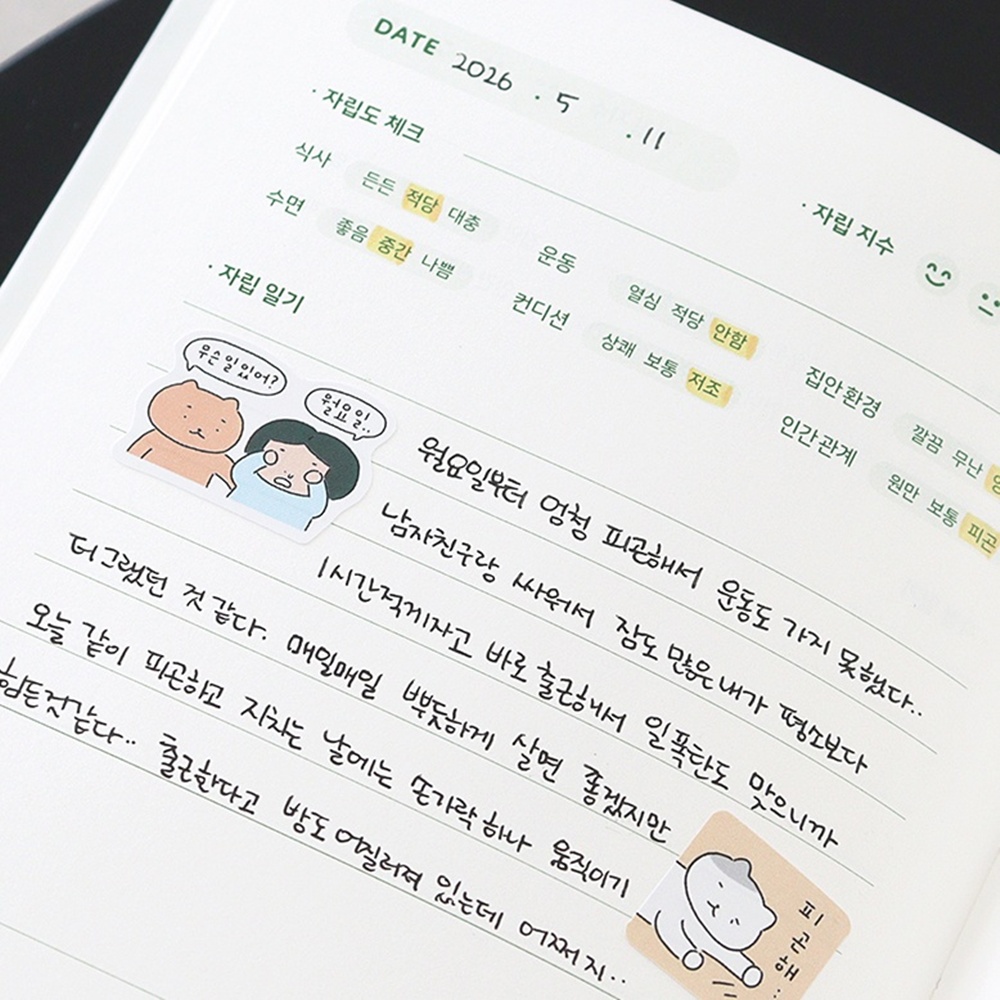 DATE 2026 . 5 . 11
· 자립도 체크
· 자립 지수
식사 든든 적당 대충
수면 좋음 중간 나쁨
운동 열심 적당 안함
컨디션 상쾌 보통 저조
집안환경 깔끔 무난
인간관계 원만 보통 피곤
· 자립 일기
무슨일있어?
월요일..
월요일부터 엄청 피곤해서 운동도 가지 못했다..
남자친구랑 싸워서 잠도 많은 내가 평소보다
1시간적게자고 바로 출근해서 일폭탄도 맞으니까
더 그랬던 것 같다. 매일매일 뿌듯하게 살면 좋겠지만
오늘 같이 피곤하고 지치는 날에는 손가락 하나 움직이기
힘든것같다.. 출근한다고 방도 어질러져 있는데 어쩌지..
피곤해..